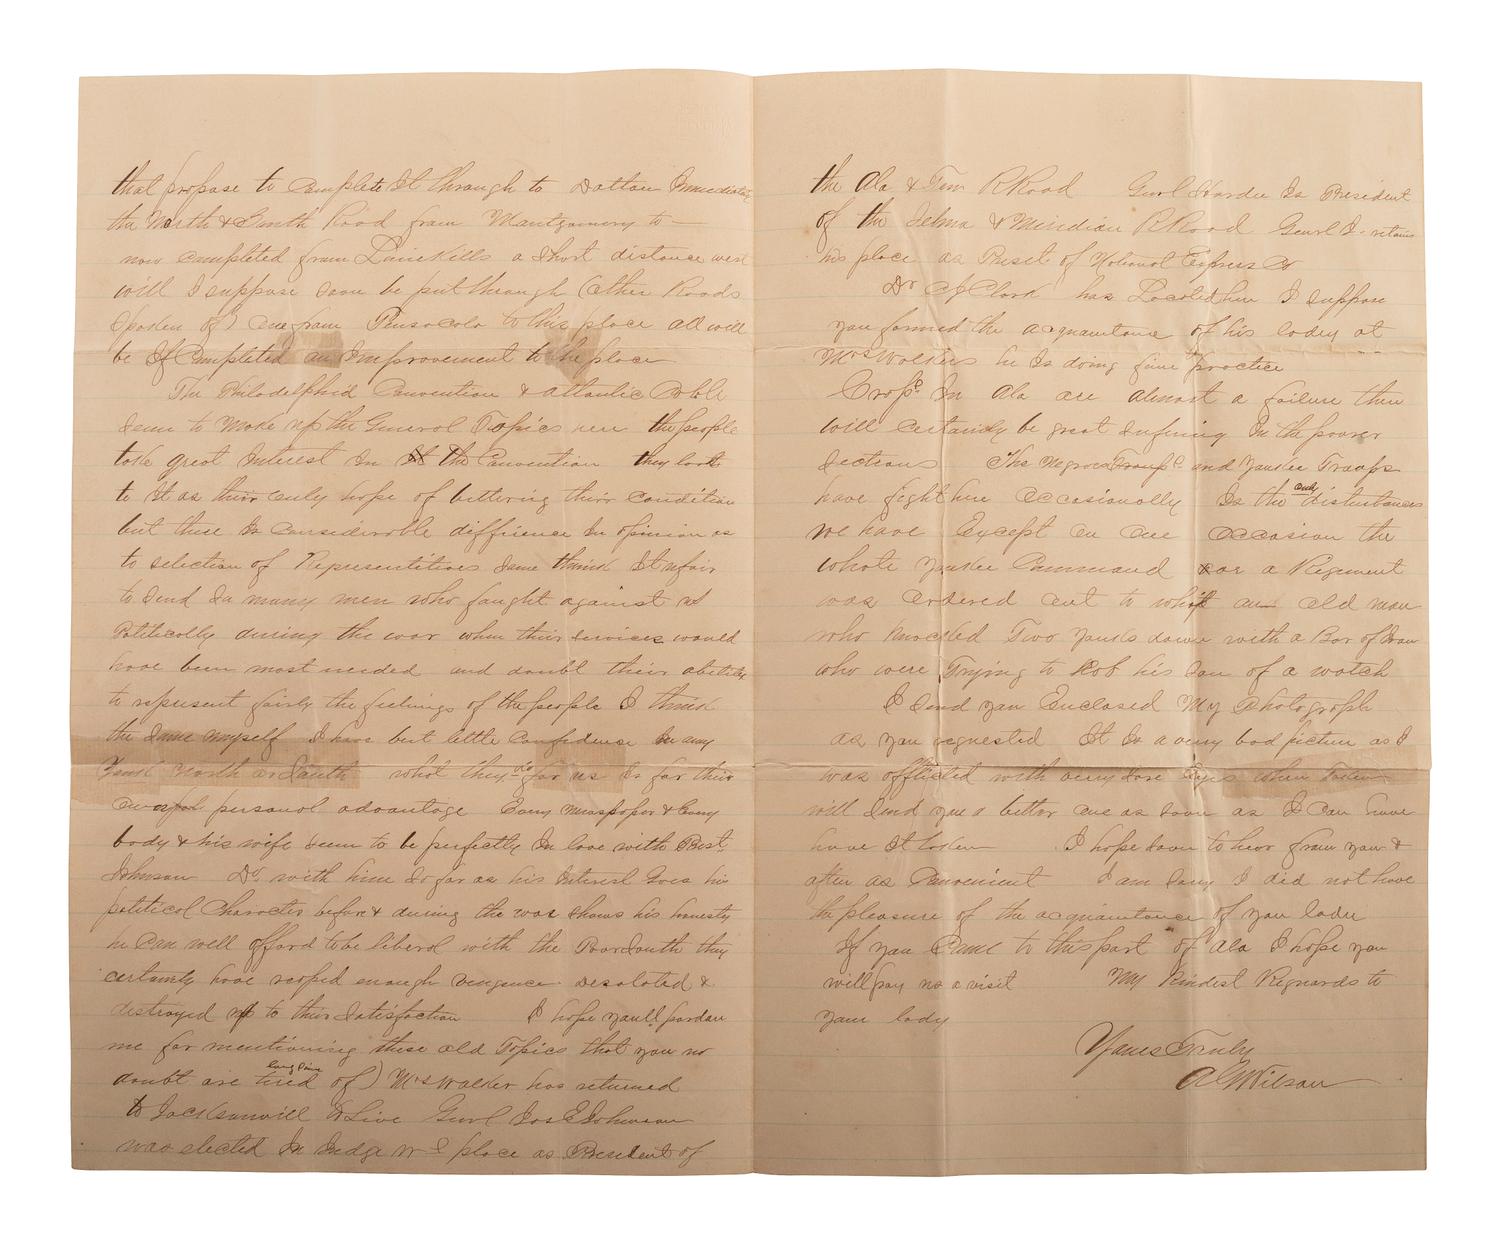 that propose to Complete It through to Dalton Immediately
the North & South Road from Montgomery to —
now completed from Limekills a Short distance west
will I suppose soon be put through (other Roads
Spoken of) one from Pensacola to this place all will
be If Completed an Improvement to the place
The Philadelphia Convention & Atlantic Cable
Seem to Make up the General Topics here the people
take great Interest In the Convention they look
to It as their only hope of bettering their condition
but there Is Considerable difference In opinion as
to selection of Representitives Some think It unfair
to Send So many men who fought against us
Politically during the war when their services would
have been most needed and doubt their ability
to represent fairly the feelings of the people I think
the Same myself I have but little Confidence In any
North or South what they do for us Is for their
own personal advantage Every Newspaper & Every
body & his wife seem to be perfectly In love with Prest.
Johnson Dr. with him So far as his Interest Goes his
political Character before & during the war Shows his honesty
he Can well afford to be liberal with the Poor South they
certainly have reaped enough vengence desolated &
destroyed up to their Satisfaction I hope youll pardon
me for mentioning these old Topics that you no
doubt are long since tired of) Mrs Walker has returned
to Jacksonvill to Live Genrl Jos E Johnson
was elected In Judge place as President of
the Ala & Tenn R Road Genrl Hardee Is President
of the Selma & Meridian R Road Genrl J. retains
his place as Prest of National Express Co
Dr Clark has Located here I suppose
you formed the acquaintance of his lady at
Mrs Walkers he Is doing fine practice
Crops In Ala are almost a failure there
will Certainly be great Suffering In the poorer
Sections The Negroe Troops and Yankee Troops
have fight here Occasionally Is the only disturbances
we have Except on one Occasion the
whole Yankee Command or a Regiment
was ordered out to whip an old man
who knocked Two Yanks down with a Bar of Iron
who were Trying to Rob his Son of a watch
I Send you Enclosed My Photograph
as you requested It Is a very bad picture as I
was afflicted with very Sore Eyes when Taken
will Send you a better one as soon as I Can
have It taken I hope soon to hear from you &
often as Convenient I am Sorry I did not have
the pleasure of the acquaintance of you lady
If you Come to this part of Ala I hope you
will pay me a visit My Kindest Regards to
your lady
Yours Truly
Wilson